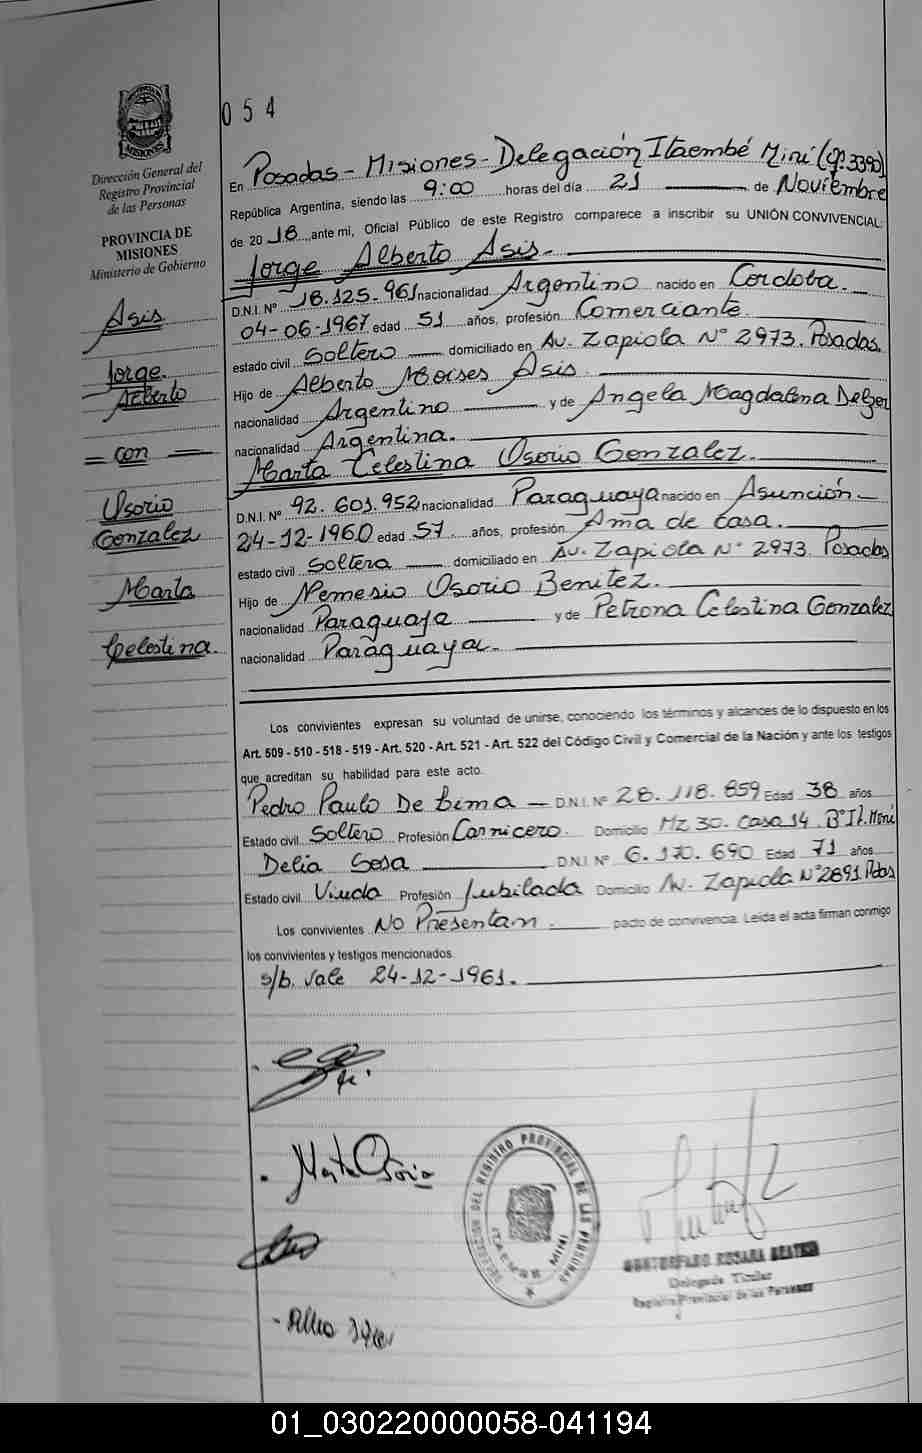 054
Dirección General del
Registro Provincial
de las Personas
PROVINCIA DE
MISIONES
Ministerio de Gobierno
Asis
Jorge
Alberto
= con =
Usorio
Gonzalez
Marta
Celestina.
En Posadas - Misiones - Delegación Itaembé Miní (Cp. 3390)
República Argentina, siendo las 9:00 horas del día 21 de Noviembre
de 2018, ante mi, Oficial Público de este Registro comparece a inscribir su UNIÓN CONVIVENCIAL:
Jorge Alberto Asis.
D.N.I. Nº 18.125.961 nacionalidad Argentino nacido en Cordoba.
04-06-1967 edad 51 años, profesión Comerciante.
estado civil Soltero domiciliado en Av. Zapiola Nº 2973. Posadas.
Hijo de Alberto Moises Asis.
nacionalidad Argentino y de Angela Magdalena
nacionalidad Argentina.
Marta Celestina Osorio Gonzalez.
D.N.I. Nº 92.601.952 nacionalidad Paraguaya nacido en Asunción
24-12-1960 edad 57 años, profesión Ama de casa.
estado civil Soltera domiciliado en Av. Zapiola Nº 2973. Posadas
Hijo de Nemesio Osorio Benitez.
nacionalidad Paraguaya y de Petrona Celestina Gonzalez
nacionalidad Paraguaya.
Los convivientes expresan su voluntad de unirse, conociendo los términos y alcances de lo dispuesto en los
Art. 509 - 510 - 518 - 519 - Art. 520 - Art. 521 - Art. 522 del Código Civil y Comercial de la Nación y ante los testigos
que acreditan su habilidad para este acto.
Pedro Paulo De Lima - D.N.I. Nº 28.118.659 Edad 38 años
Estado civil Soltero Profesión Carnicero. Domicilio Mz 30. Casa 14. Bº It. Miní
Delia Sosa D.N.I. Nº 6.170.690 Edad 71 años
Estado civil Viuda Profesión Jubilada Domicilio Av. Zapiola Nº 2891. Pdas
Los convivientes No Presentan. pacto de convivencia. Leída el acta firman conmigo
los convivientes y testigos mencionados.
s/b. vale 24-12-1961.
Marta Osorio
DELEGACION DEL REGISTRO PROVINCIAL DE LAS PERSONAS
ITAEMBE MINI
ROSARA BEATRIZ
Delegada Titular
Registro Provincial de las Personas
01_030220000058-041194